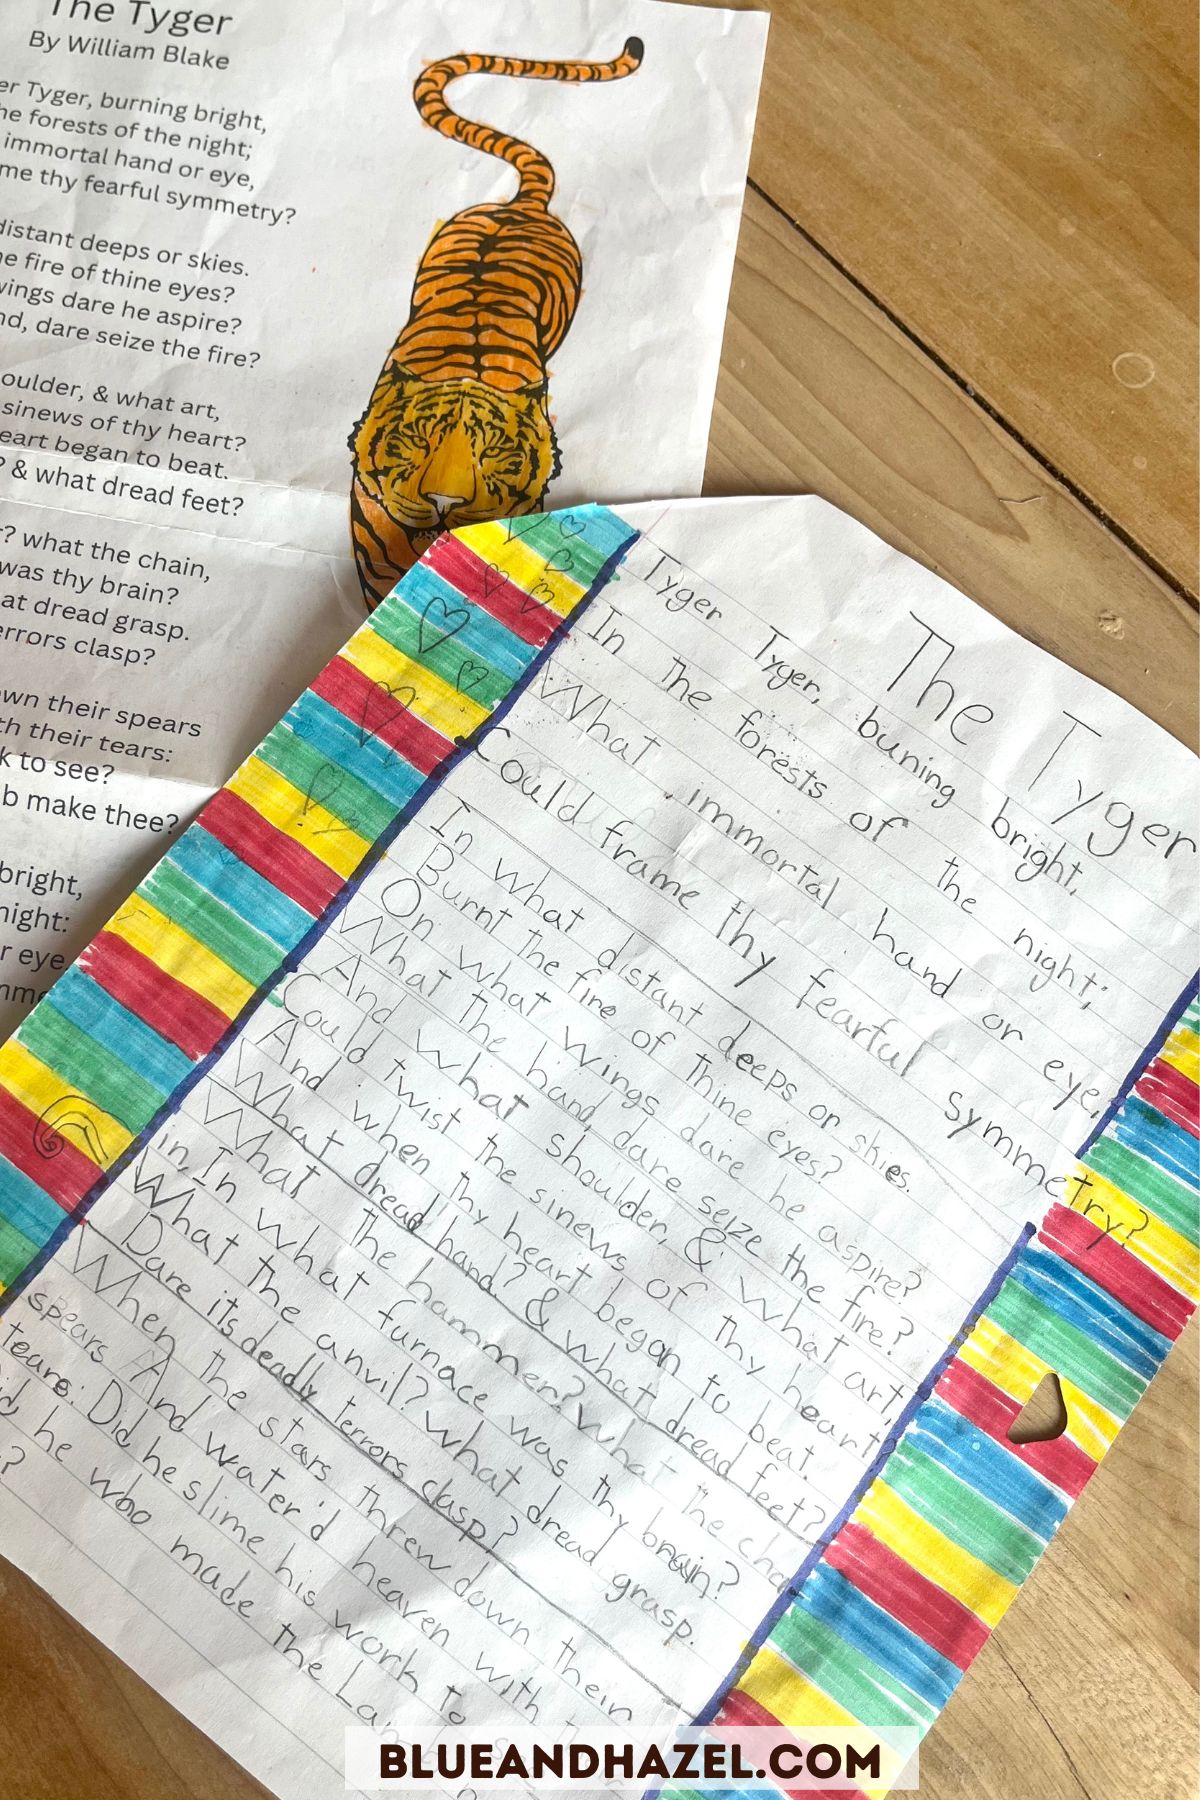 The Tyger
By William Blake
er Tyger, burning bright,
he forests of the night;
immortal hand or eye,
me thy fearful symmetry?
distant deeps or skies.
e fire of thine eyes?
wings dare he aspire?
nd, dare seize the fire?
oulder, & what art,
sinews of thy heart?
eart began to beat.
? & what dread feet?
? what the chain,
was thy brain?
at dread grasp.
errors clasp?
wn their spears
th their tears:
k to see?
b make thee?
bright,
night:
r eye,
mme
The Tyger
Tyger Tyger, buning bright,
In the forests of the night;
What immortal hand or eye,
Could frame thy fearful symmetry?
In what distant deeps or skies.
Burnt the fire of thine eyes?
On what wings dare he aspire?
What the hand, dare seize the fire?
And what shoulder, & what art,
Could twist the sinews of thy heart
And when thy heart began to beat.
What dread hand? & what dread feet?
What the hammer? what the cha
in, In what furnace was thy brain?
What the anvil? what dread grasp.
Dare its deadly terrors clasp?
When the stars threw down their
spears And water'd heaven with
tears: Did he slime his work to
he who made the Lam
?
BLUEANDHAZEL.COM